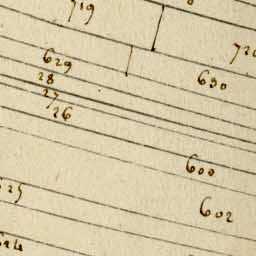 719
720
629
630
28
27
26
600
625
602
624